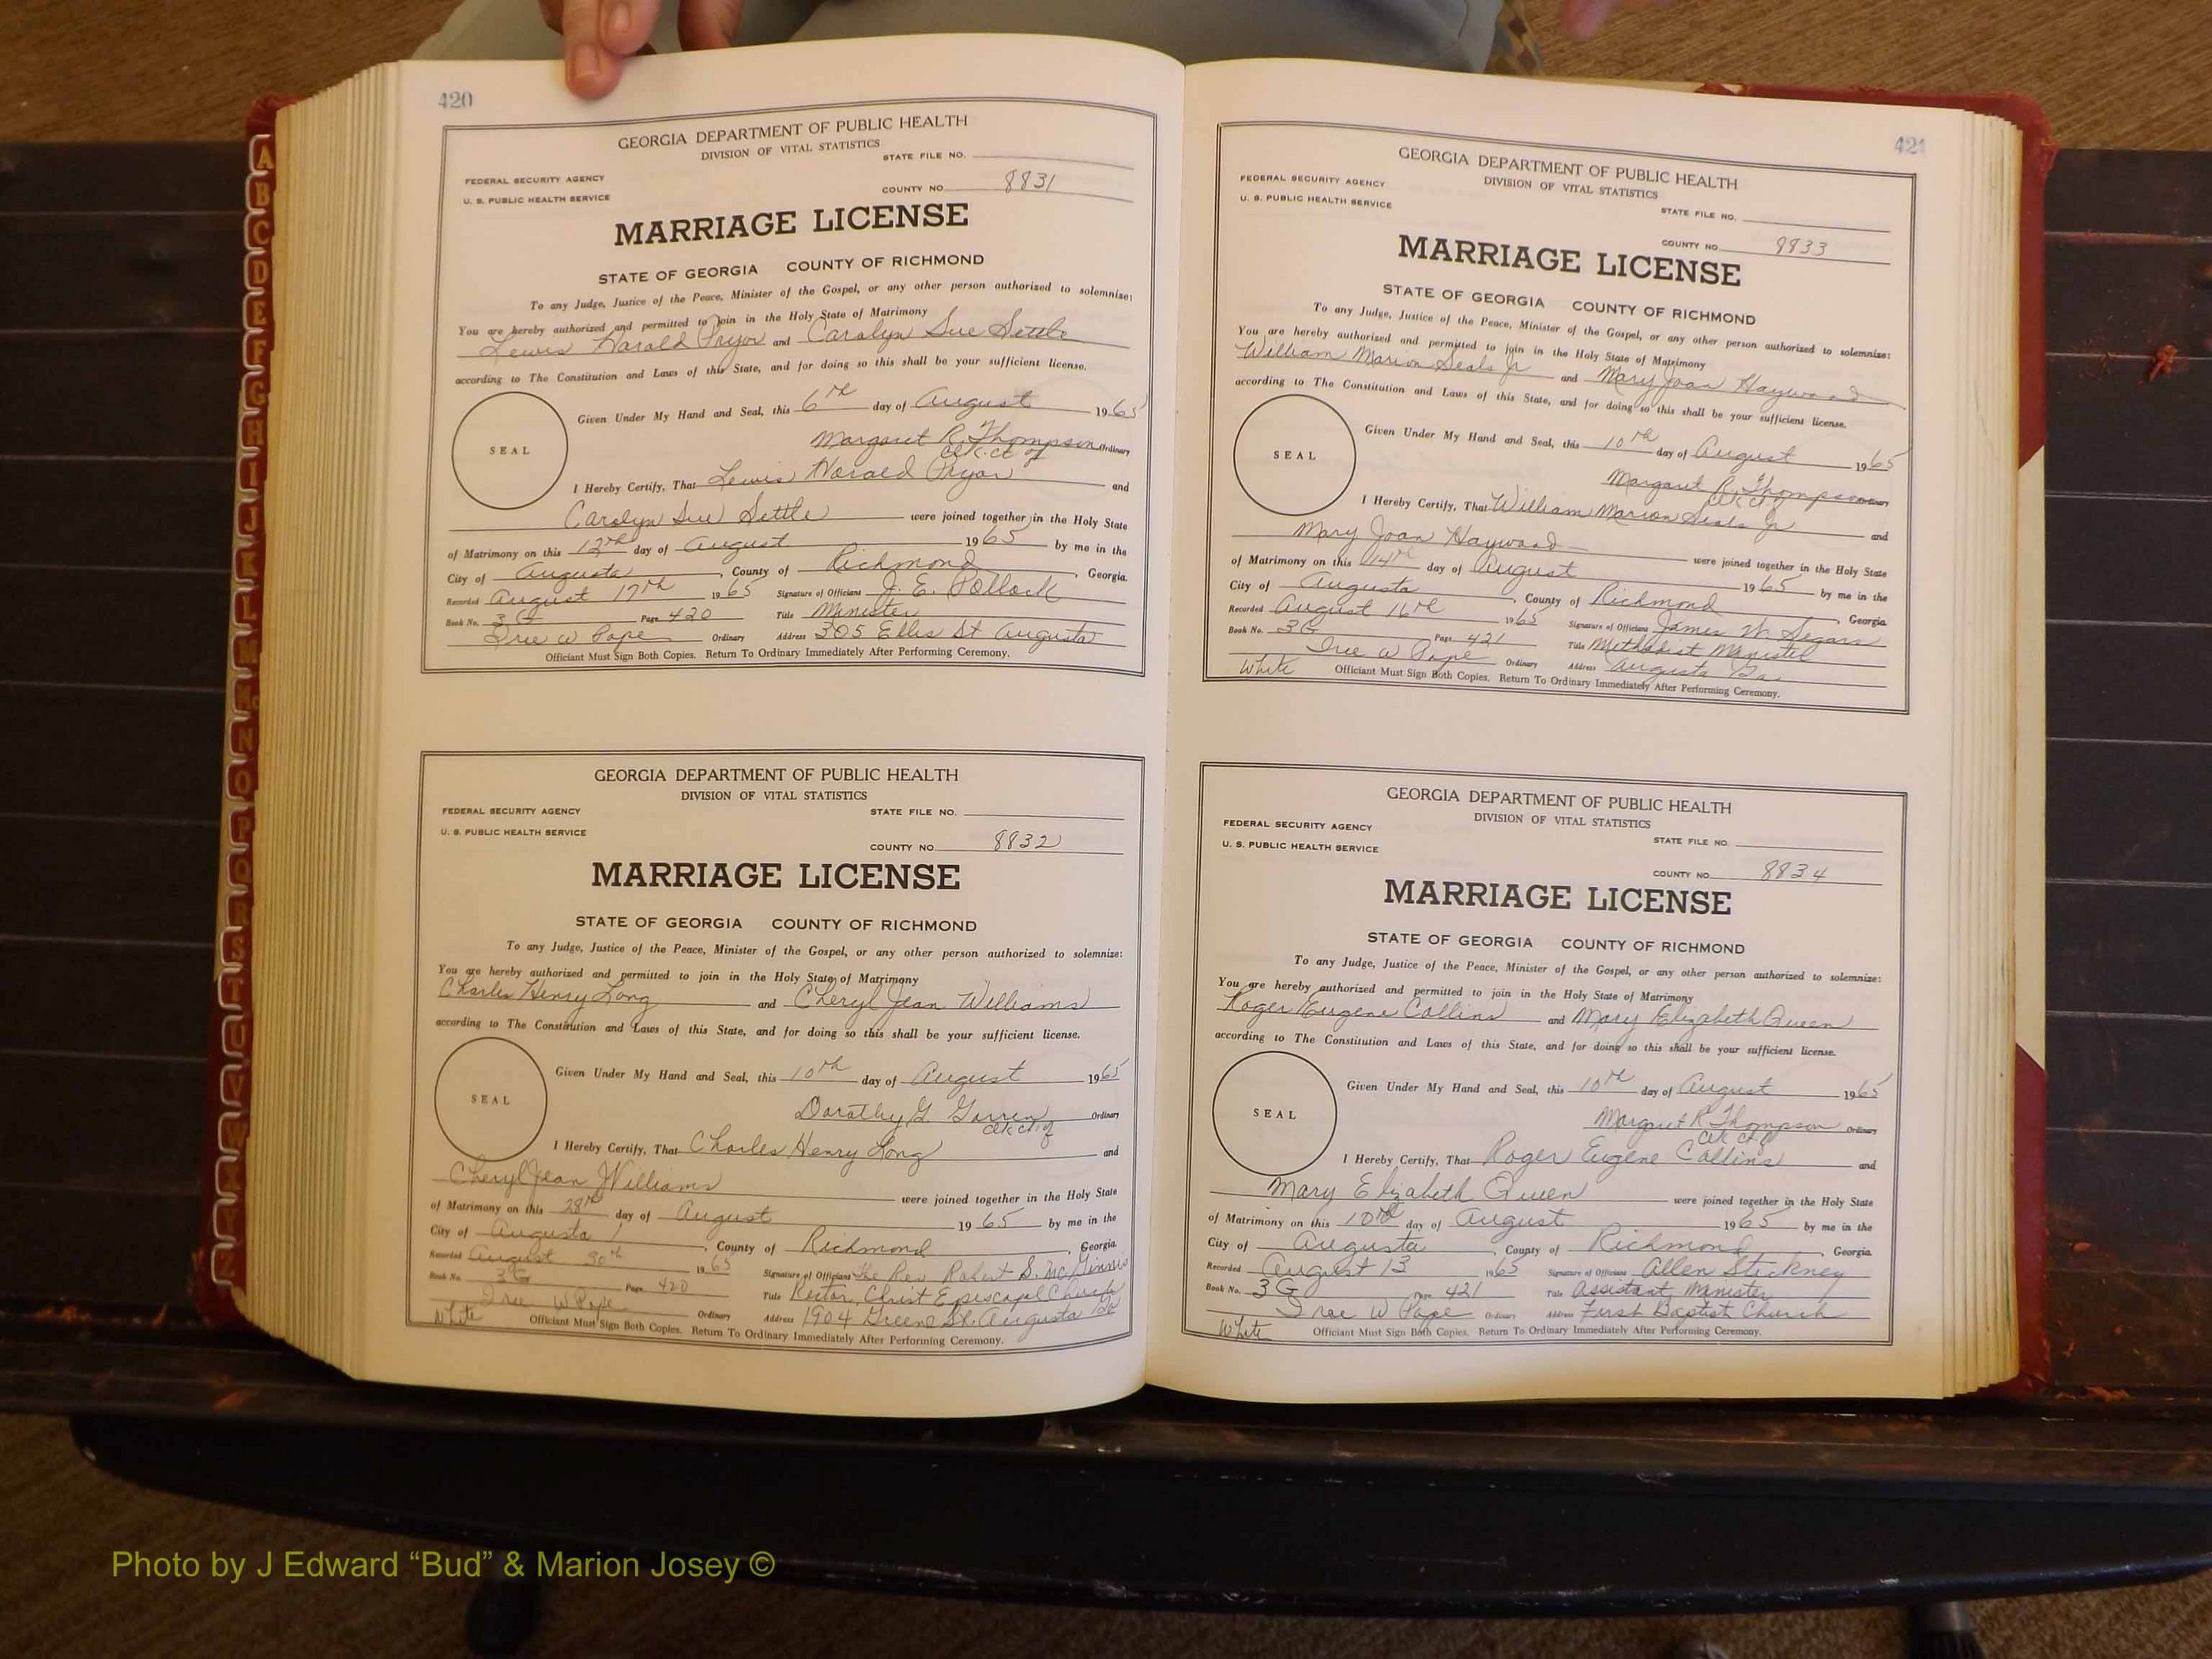 420
GEORGIA DEPARTMENT OF PUBLIC HEALTH
DIVISION OF VITAL STATISTICS
STATE FILE NO.
FEDERAL SECURITY AGENCY
COUNTY NO. 8831
U. S. PUBLIC HEALTH SERVICE
MARRIAGE LICENSE
STATE OF GEORGIA COUNTY OF RICHMOND
To any Judge, Justice of the Peace, Minister of the Gospel, or any other person authorized to solemnize:
You are hereby authorized and permitted to join in the Holy State of Matrimony
Lewis Harold Pryor and Carolyn Sue Settle
according to The Constitution and Laws of this State, and for doing so this shall be your sufficient license.
Given Under My Hand and Seal, this 6th day of August 1965
SEAL
Margaret R. Thompson Ordinary
Clk. ct. of
I Hereby Certify, That Lewis Harold Pryor and
Carolyn Sue Settle were joined together in the Holy State
of Matrimony on this 12th day of August 1965 by me in the
City of Augusta, County of Richmond, Georgia.
Recorded August 17th 1965 Signature of Officiant J. E. Pollock
Book No. 3 G Page 420 Title Minister
W Pope Ordinary Address 305 Ellis St Augusta
Officiant Must Sign Both Copies. Return To Ordinary Immediately After Performing Ceremony.
GEORGIA DEPARTMENT OF PUBLIC HEALTH
DIVISION OF VITAL STATISTICS
FEDERAL SECURITY AGENCY STATE FILE NO.
U. S. PUBLIC HEALTH SERVICE
COUNTY NO. 8832
MARRIAGE LICENSE
STATE OF GEORGIA COUNTY OF RICHMOND
To any Judge, Justice of the Peace, Minister of the Gospel, or any other person authorized to solemnize:
You are hereby authorized and permitted to join in the Holy State of Matrimony
Charles Henry Long and Cheryl Jean Williams
according to The Constitution and Laws of this State, and for doing so this shall be your sufficient license.
Given Under My Hand and Seal, this 10th day of August 1965
SEAL
Dorothy G. Ordinary
Clk ct of
I Hereby Certify, That Charles Henry Long and
Cheryl Jean Williams were joined together in the Holy State
of Matrimony on this 28th day of August 1965 by me in the
City of Augusta, County of Richmond, Georgia.
Recorded August 30th 1965 Signature of Officiant The Rev Robert S. McGinnis
Book No. 3 G Page 420 Title Rector, Christ Episcopal Church
W Pope Ordinary Address 1904 Greene St. Augusta Ga
White Officiant Must Sign Both Copies. Return To Ordinary Immediately After Performing Ceremony.
421
GEORGIA DEPARTMENT OF PUBLIC HEALTH
DIVISION OF VITAL STATISTICS
FEDERAL SECURITY AGENCY
U. S. PUBLIC HEALTH SERVICE
STATE FILE NO.
COUNTY NO. 8833
MARRIAGE LICENSE
STATE OF GEORGIA COUNTY OF RICHMOND
To any Judge, Justice of the Peace, Minister of the Gospel, or any other person authorized to solemnize:
You are hereby authorized and permitted to join in the Holy State of Matrimony
William Marion Seals Jr and Mary Joan Hayward
according to The Constitution and Laws of this State, and for doing so this shall be your sufficient license.
Given Under My Hand and Seal, this 10th day of August 1965
SEAL
Margaret R. Thompson Ordinary
Clk ct of
I Hereby Certify, That William Marion Seals Jr and
Mary Joan Hayward were joined together in the Holy State
of Matrimony on this 14th day of August 1965 by me in the
City of Augusta, County of Richmond, Georgia.
Recorded August 16th 1965 Signature of Officiant James W. Segars
Book No. 3G Page 421 Title Methodist Minister
W Pope Ordinary Address Augusta Ga.
White Officiant Must Sign Both Copies. Return To Ordinary Immediately After Performing Ceremony.
GEORGIA DEPARTMENT OF PUBLIC HEALTH
DIVISION OF VITAL STATISTICS
FEDERAL SECURITY AGENCY
U. S. PUBLIC HEALTH SERVICE
STATE FILE NO.
COUNTY NO. 8834
MARRIAGE LICENSE
STATE OF GEORGIA COUNTY OF RICHMOND
To any Judge, Justice of the Peace, Minister of the Gospel, or any other person authorized to solemnize:
You are hereby authorized and permitted to join in the Holy State of Matrimony
Roger Eugene Collins and Mary Elizabeth Queen
according to The Constitution and Laws of this State, and for doing so this shall be your sufficient license.
Given Under My Hand and Seal, this 10th day of August 1965
SEAL
Margaret R. Thompson Ordinary
Clk ct of
I Hereby Certify, That Roger Eugene Collins and
Mary Elizabeth Queen were joined together in the Holy State
of Matrimony on this 10th day of August 1965 by me in the
City of Augusta, County of Richmond, Georgia.
Recorded August 13 1965 Signature of Officiant Allen Stickney
Book No. 3 G Page 421 Title Assistant Minister
W Pope Ordinary Address First Baptist Church
White Officiant Must Sign Both Copies. Return To Ordinary Immediately After Performing Ceremony.
A
B
C
D
E
F
G
H
I
J
K
L
M
Mc
N
O
P
Q
R
S
T
U
V
W
Photo by J Edward “Bud” & Marion Josey ©